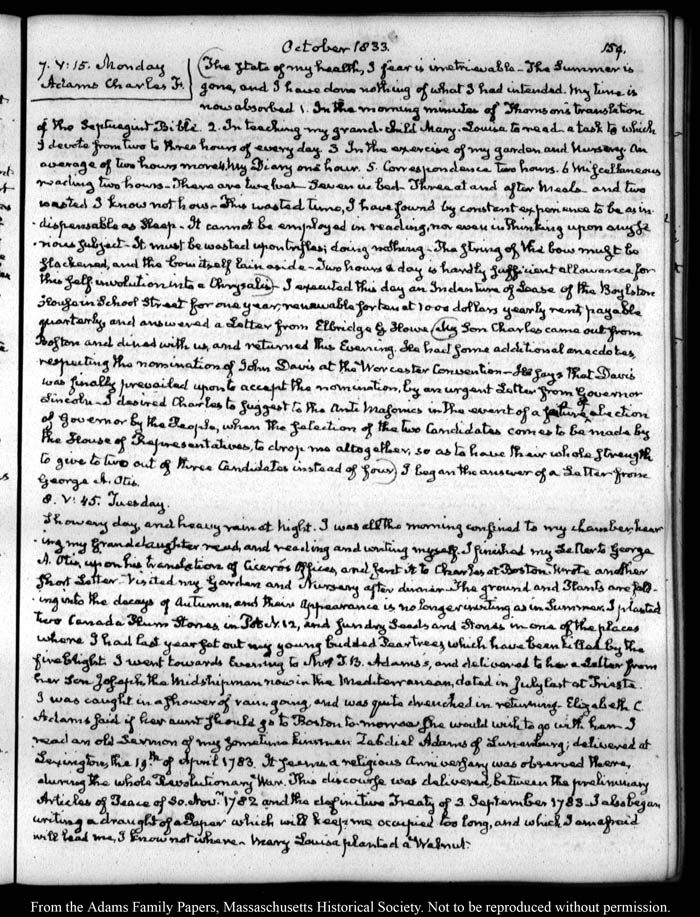 October 1833.
159.
7. V:15. Monday
Adams Charles F.
The state of my health, I fear is irretrievable - The Summer is
gone, and I have done nothing of what I had intended. My time is
now absorbed 1. In the morning minutes of Thomson's translation
of the Septuagint Bible. 2. In teaching my grand-child Mary-Louisa to read a task to which
I devote from two to three hours of every day. 3 In the exercise of my garden and Nursery. An
average of two hours more 4. My Diary one hour. 5. Correspondence two hours. 6 Miscellaneous
reading two hours - There are twelve - Seven in bed - Three at and after Meals - and two
wasted I know not how - This wasted time, I have found by constant experience to be as in-
dispensable as Sleep - It cannot be employed in reading, nor even in thinking upon any se-
rious subject - It must be wasted upon trifles; doing nothing - The string of the bow must be
slackened, and the bow itself laid aside - Two hours a day is hardly sufficient allowance for
this self involution into a Chrysalis - I executed this day an Indenture of Lease of the Boylston
House in School Street for one year, renewable for ten at 1000 dollars yearly rent, payable
quarterly, and answered a Letter from Elbridge G. Howe. My Son Charles came out from
Boston and dined with us, and returned this Evening. He had some additional anecdotes,
respecting the nomination of John Davis at the Worcester Convention - He says that Davis
was finally prevailed upon to accept the nomination, by an urgent Letter from Governor
Lincoln - I desired Charles to suggest to the Anti Masonics in the event of a failure of election
of Governor by the People, when the selection of the two Candidates comes to be made by
the House of Representatives, to drop me altogether, so as to have their whole strength
to give to two out of three Candidates instead of four. I began the answer of a Letter from
George A. Otis.
8. V:45. Tuesday.
Showery day, and heavy rain at Night. I was all the morning confined to my chamber, hear-
ing my Granddaughter read, and reading and writing myself. I finished my Letter to George
A. Otis, upon his translation of Cicero's Offices, and sent it to Charles at Boston. Wrote another
short Letter - Visited my Garden and Nursery after dinner - The ground and Plants are fall-
ing into the decays of Autumn, and their appearance is no longer inviting as in Summer. I planted
two Canada Plum Stones in Pot N. 12, and sundry Seeds and Stones in one of the places
where I had last year set out my young budded Pear trees, which have been killed by the
fire blight. I went towards Evening to Mrs T. B. Adams's, and delivered to her a Letter from
her Son Joseph, the Midshipman now in the Mediterranean, dated in July last at Trieste.
I was caught in a shower of rain, going, and was quite drenched in returning. Elizabeth C.
Adams said if her aunt should go to Boston to-morrow she would wish to go with her. I
read an old Sermon of my sometime kinsman Zabdiel Adams of Lunenburg; delivered at
Lexington, the 19th of April 1783. It seems a religious Anniversary was observed there,
during the whole Revolutionary War. This discourse was delivered, between the preliminary
Articles of Peace of 30. Novr. 1782 and the definitive Treaty of 3 September 1783. I also began
writing a draught of a Paper which will keep me occupied too long, and which I am afraid
will lead me, I know not where - Mary Louisa planted a Walnut.
From the Adams Family Papers, Massachusetts Historical Society. Not to be reproduced without permission.